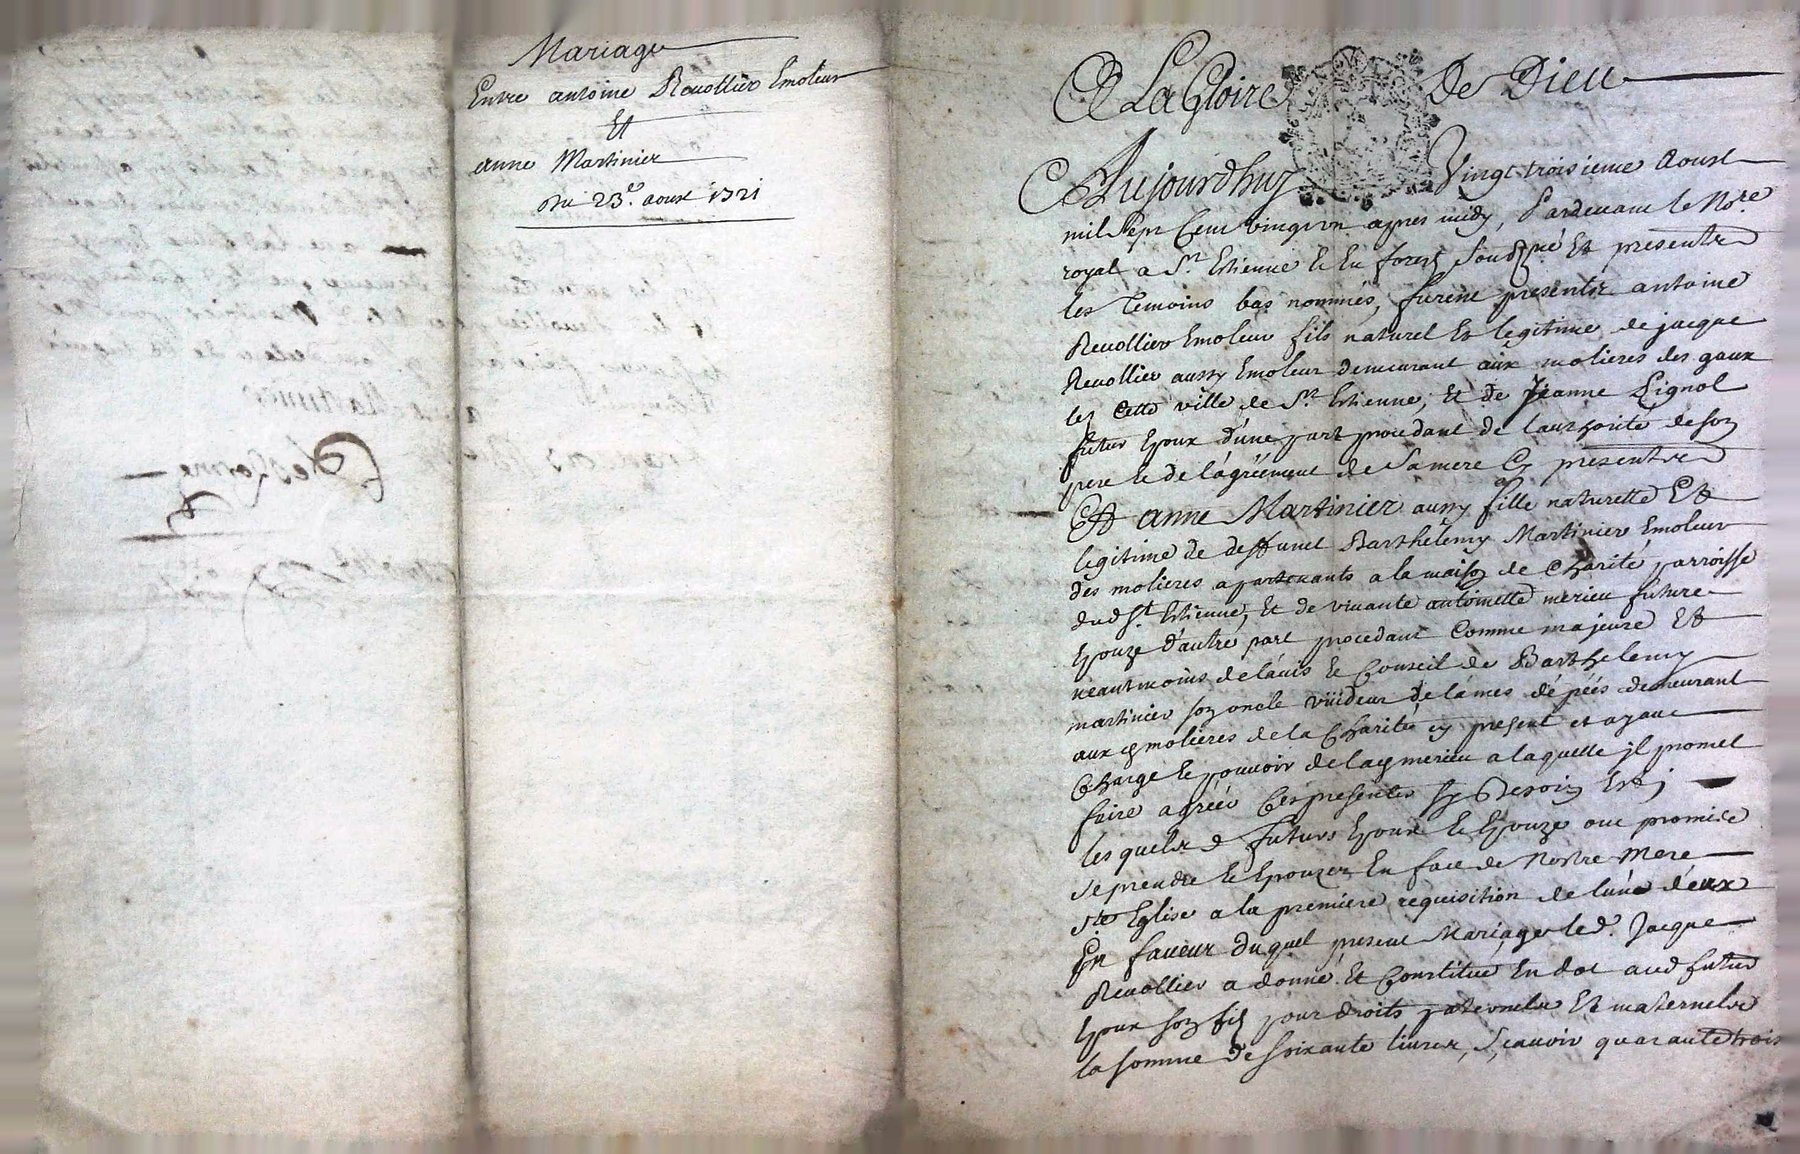 Mariage
Entre antoine Reuollier Emoleur
Et
anne Martinier
du 23.e aoust 1721
A La Gloire De Dieu
Aujourdhuy Vingt troisieme Aoust
mil sept Cent vingt un apres midy, Pardeuant le No.re
royal a St. Estienne Et En forest Soub.né Et presents
les Temoins bas nommés, furent presents antoine
Reuollier Emoleur fils naturel Et legitime de jacque
Reuollier aussy Emoleur demeurant aux molieres des gaux
les Cette ville de St. Estienne, Et de Jeanne Lignol
futur Epoux d'une part procedant de l'authorité de son
pere Et de l'agréement de Sa mere Cy presents
Et anne Martinier aussy fille naturelle Et
legitime de deffunt Barthelemy Martinier Emoleur
des molieres apartenants a la maison de Charité parroisse
dud St. Estienne, Et de viuante antoinette merieu future
Epouze d'autre part procedant Comme majeure Et
neantmoins de l'auis Et Conseil de Barthelemy
martinier son oncle vuideur de lames d'épées demeurant
aux molieres de la Charité cy present et ayant
Charge Et pouuoir de la merieu a laquelle jl promet
faire agréér Ces presentes Sy Besoin Est;
les quels futurs Epoux Et Epouze ont promis
se prendre Et Epouzer En face de Nostre Mere
ste Eglise a la premiere requisition de l'un d'eux
En faueur du quel present Mariage led. Jacque
Reuollier a donné Et Constitué En dot aud futur
Epoux son fils pour droits paternels Et maternels
la somme de soixante liures, Scauoir quarante trois